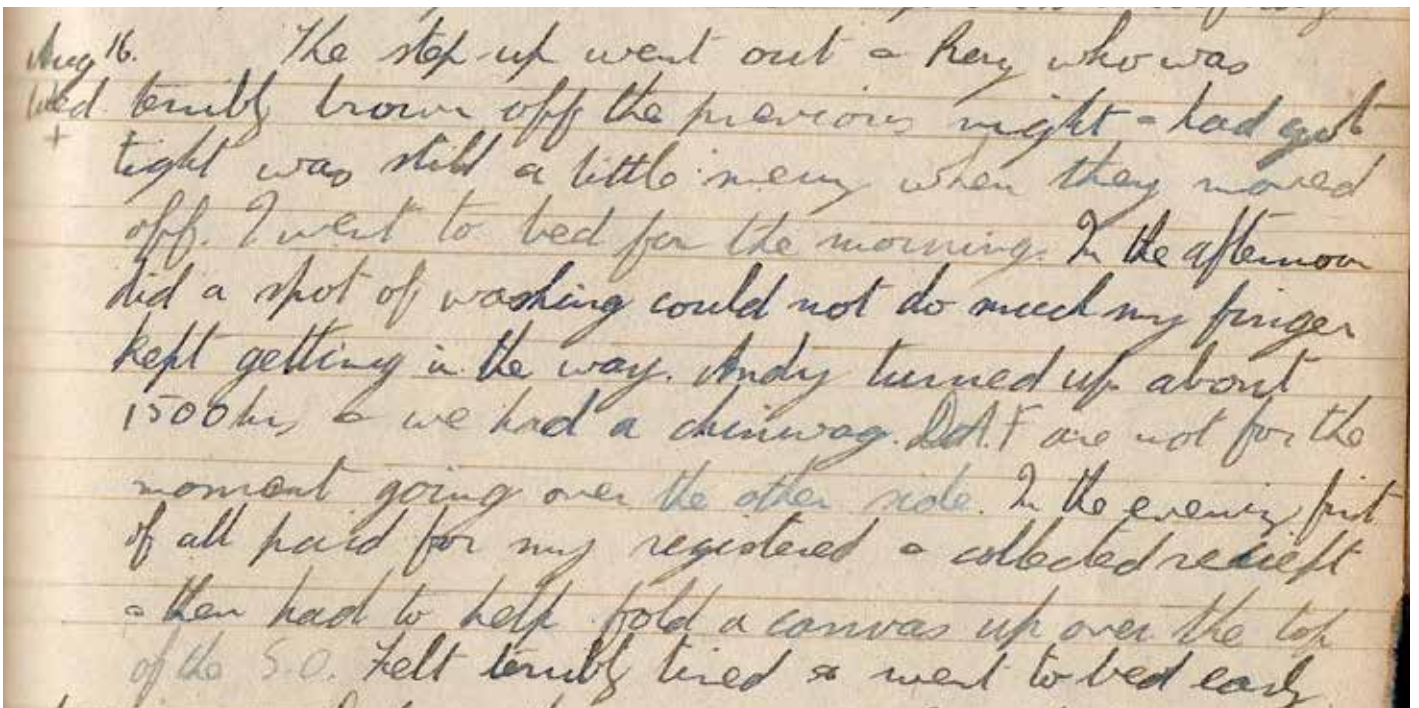 Aug 16. The step-up went out & Reg who was
Wed terribly brown off the previous night & had got
+
tight was still a little merry when they moved
off. I went to bed for the morning. In the afternoon
did a spot of washing could not do much my finger
kept getting in the way. Andy turned up about
1500 hrs & we had a chinwag. D.A.F are not for the
moment going over the other side. In the evening first
of all paid for my registered & collected reciept
& then had to help fold a canvas up over the top
of the S.O. Felt terribly tired & went to bed early